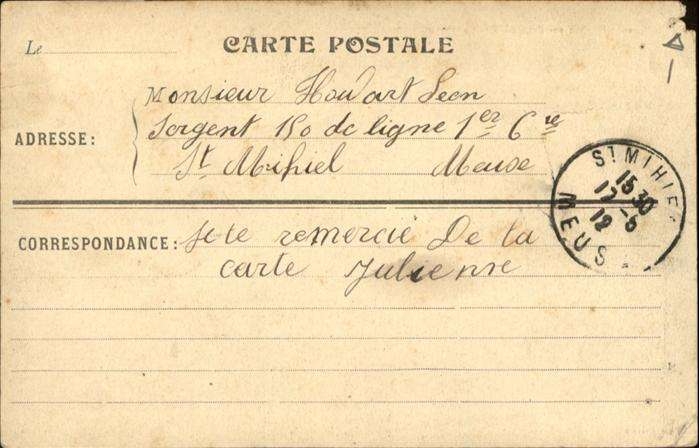 Le
CARTE POSTALE
ADRESSE :
Monsieur Houdart Leon
Sergent 150 de ligne 1er Cie
St Mihiel Meuse
ST MIHIEL
15 30
17 - 5
12
MEUSE
CORRESPONDANCE : Je te remercie De ta
carte Julienne